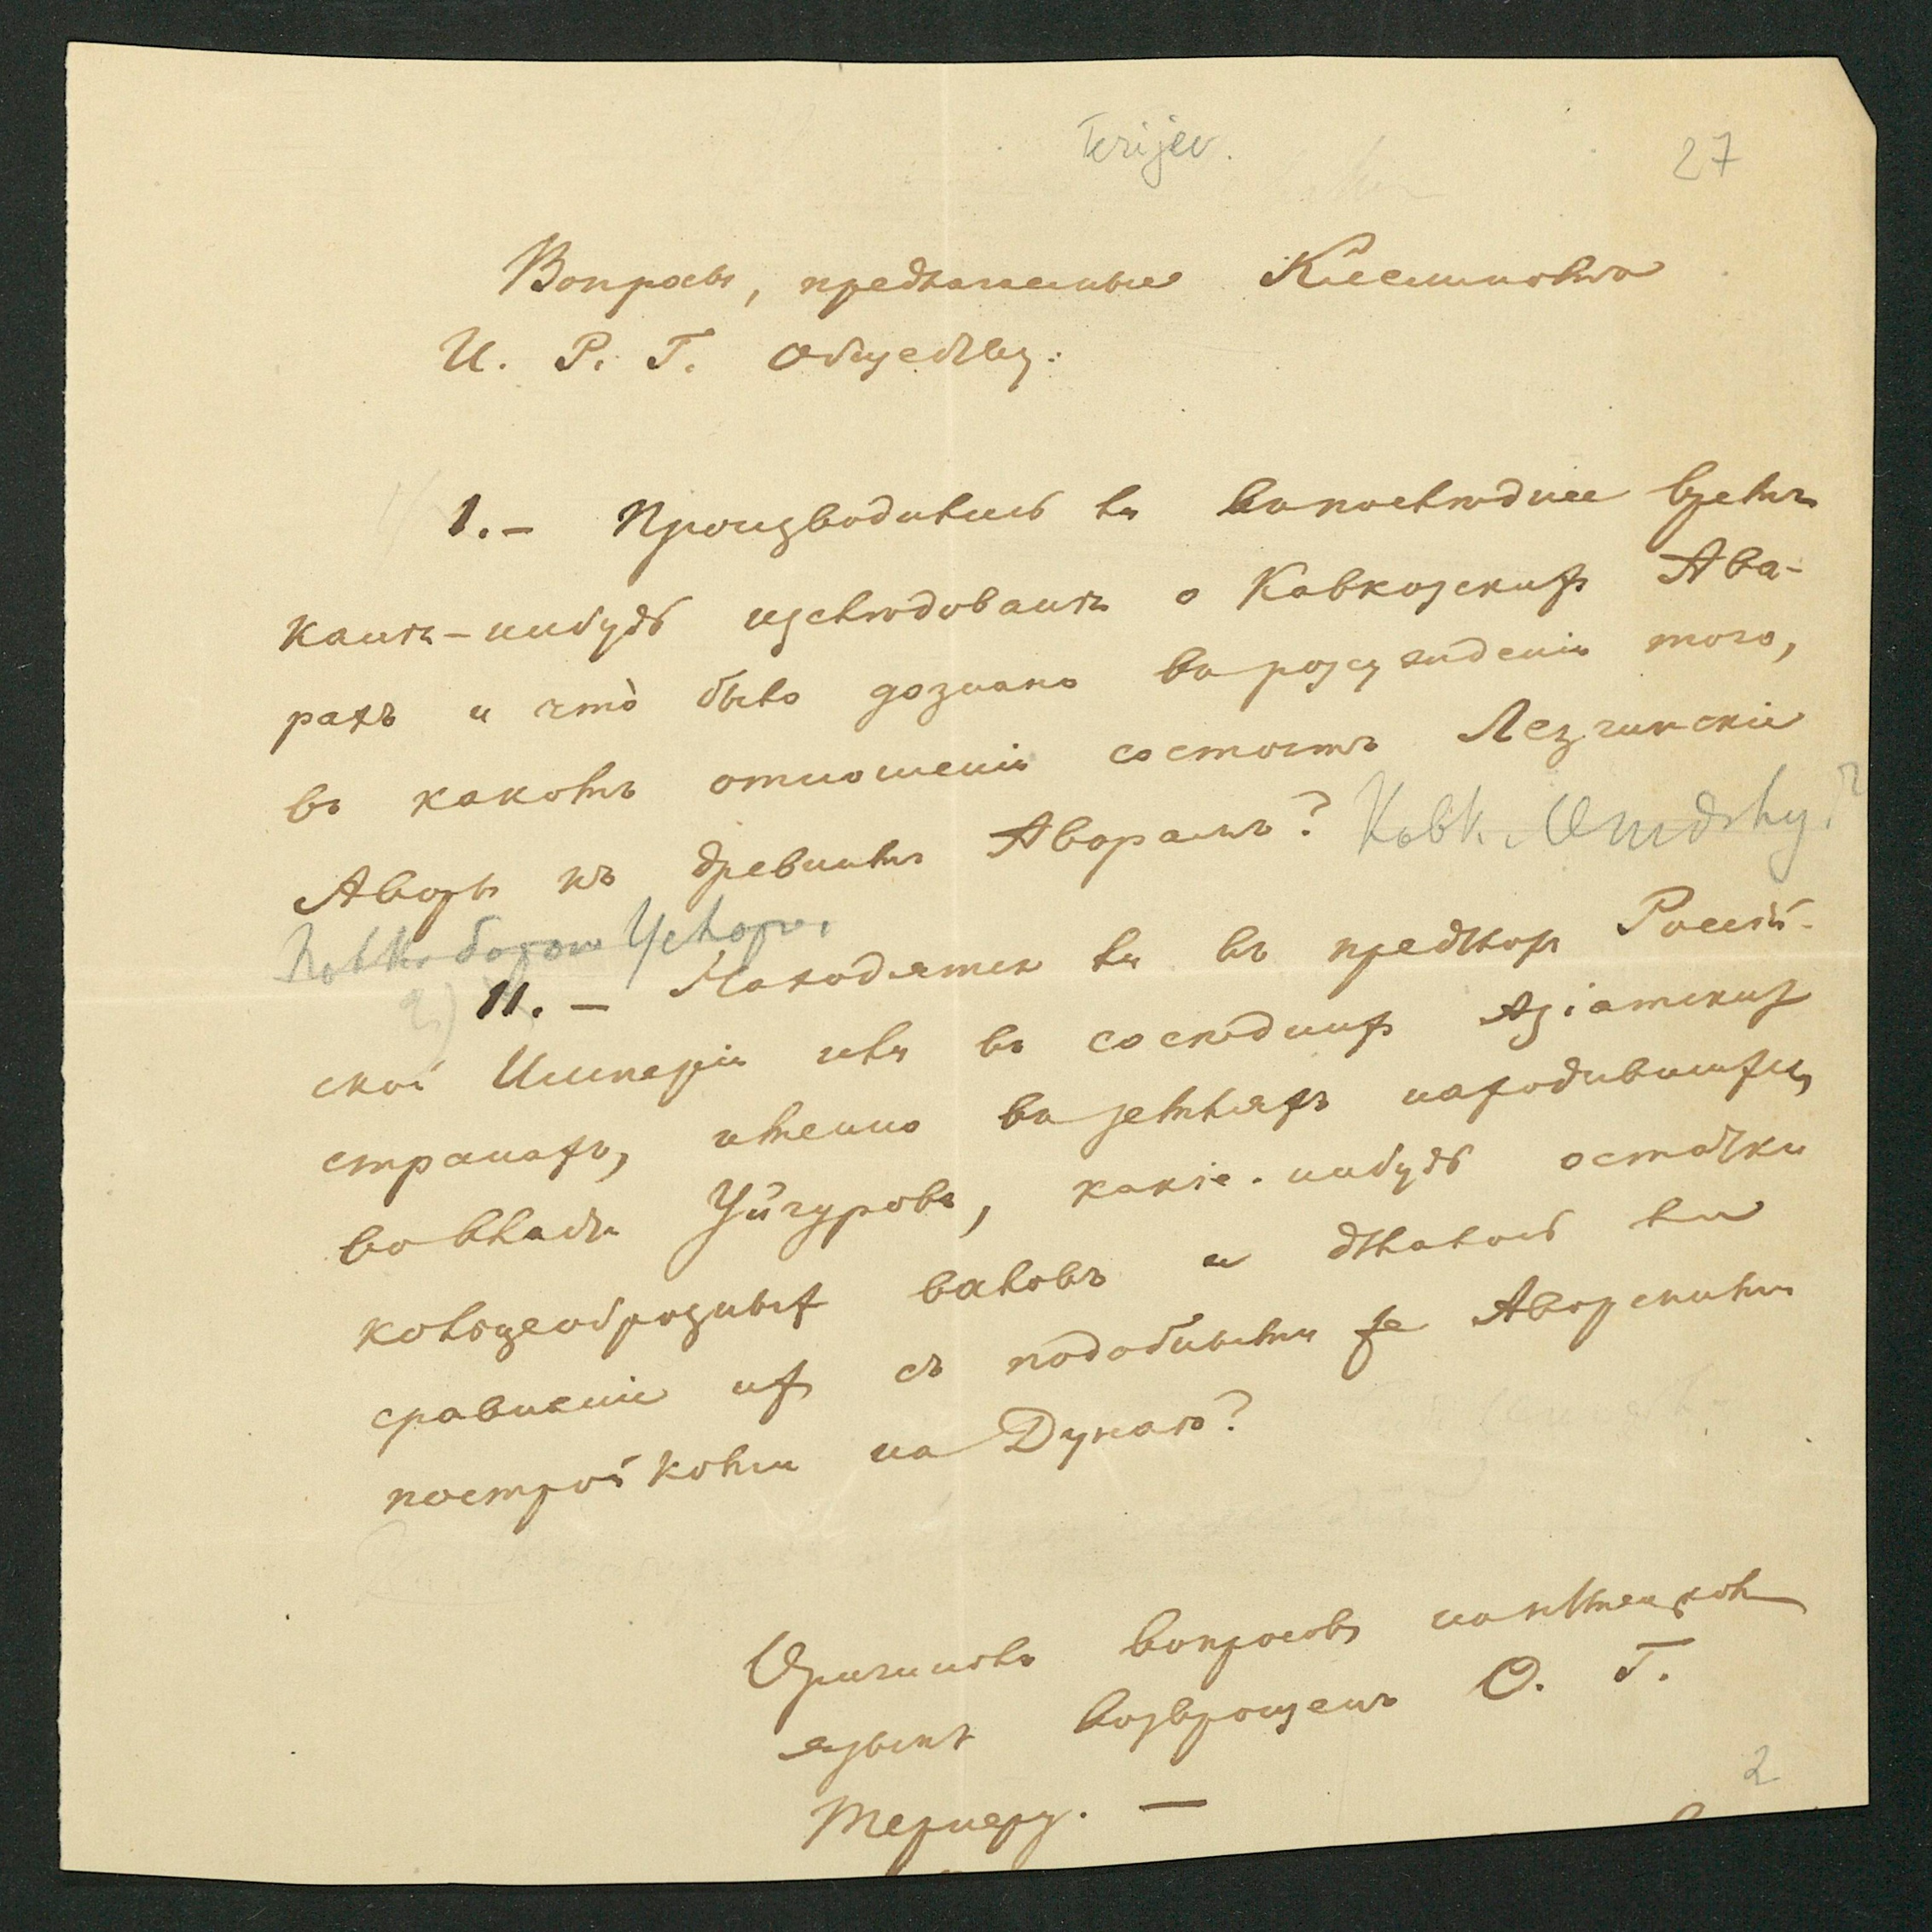 Terijev.
27
Вопросы, предлагаемые
И. Р. Г. Обществу:
I. – Производились ли въ последнее время
каия-нибудь изследования о Кавказскихъ Ава-
рахъ и что̀ было дознано въ разсуждении того,
въ какомъ отношении состоятъ Лезгинскіе
Авары къ древнимъ Аварамъ? Кавк. Отделу?
Кавк.
2)
II. – Находятся ли въ пределахъ Россій-
ской Имперіи или въ соседнихъ Азіатскихъ
странахъ, именно въ земляхъ находившихся
во власти Уйгуровъ, какіе-нибудь остатки
кольцеобразныхъ валовъ и делалось ли
сравненіе ихъ съ подобными же Аварскими
постройками на Дунаѣ?
Оригиналъ вопросовъ на Немецкомъ
языкѣ возвращенъ Ѳ. Г.
Тернеру. —
2